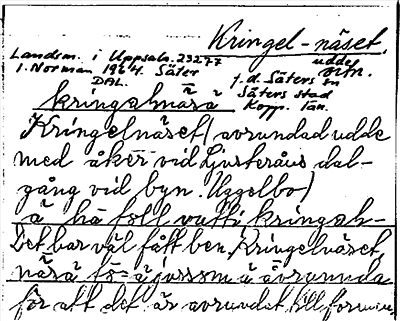 Kringel-näset,
udde
Landsm. i Uppsala. 23277
I. Norman 1964. Säter
DAL.
f.d. Säters
Säters stad
Kopp. län.
kringalnäsä
Kringelnäset (avrundad udde
med åker vid Ljusteråns dal-
gång vid byn. Uggelbo)
ä ha foll vutti kringah-
Det har väl fått ben. Kringelnäset,
näsä fö ä jussom ä avrunda
för att det är avrundat till formen